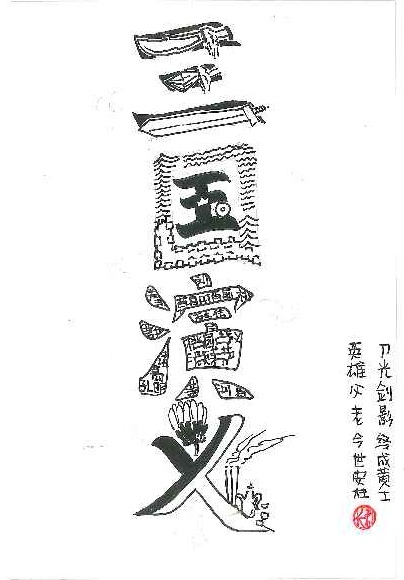 三国演义
刀光剑影 终成黄土
英雄父老 今世安在